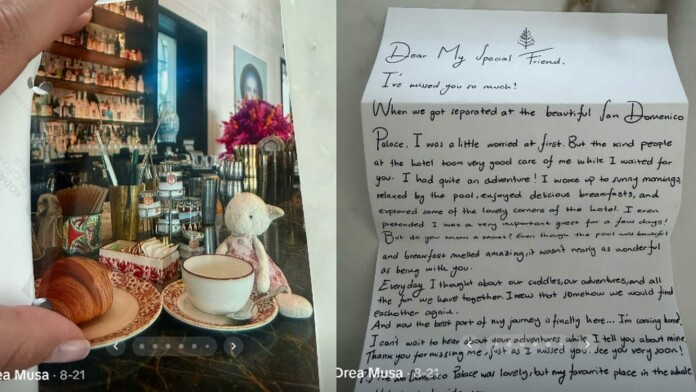 Dear My Special Friend,
I've missed you so much!
When we got separated at the beautiful San Domenico
Palace, I was a little worried at first. But the kind people
at the hotel took very good care of me while I waited for
you. I had quite an adventure! I woke up to sunny mornings,
relaxed by the pool, enjoyed delicious breakfasts, and
explored some of the lovely corners of the hotel. I even
pretended I was a very important guest for a few days!
But do you know a secret? Even though the pool was beautiful
and breakfast smelled amazing, it wasn't nearly as wonderful
as being with you.
Everyday I thought about our cuddles, our adventures, and all
the fun we have together. I knew that somehow we would find
eachother again.
And now the best part of my journey is finally here... I'm coming home.
I can't wait to hear about your adventures while I tell you about mine.
Thank you for missing me, just as I missed you. See you very soon!
San Domenico Palace was lovely, but my favourite place in the whole
ea Musa · 8-21
Drea Musa · 8-21